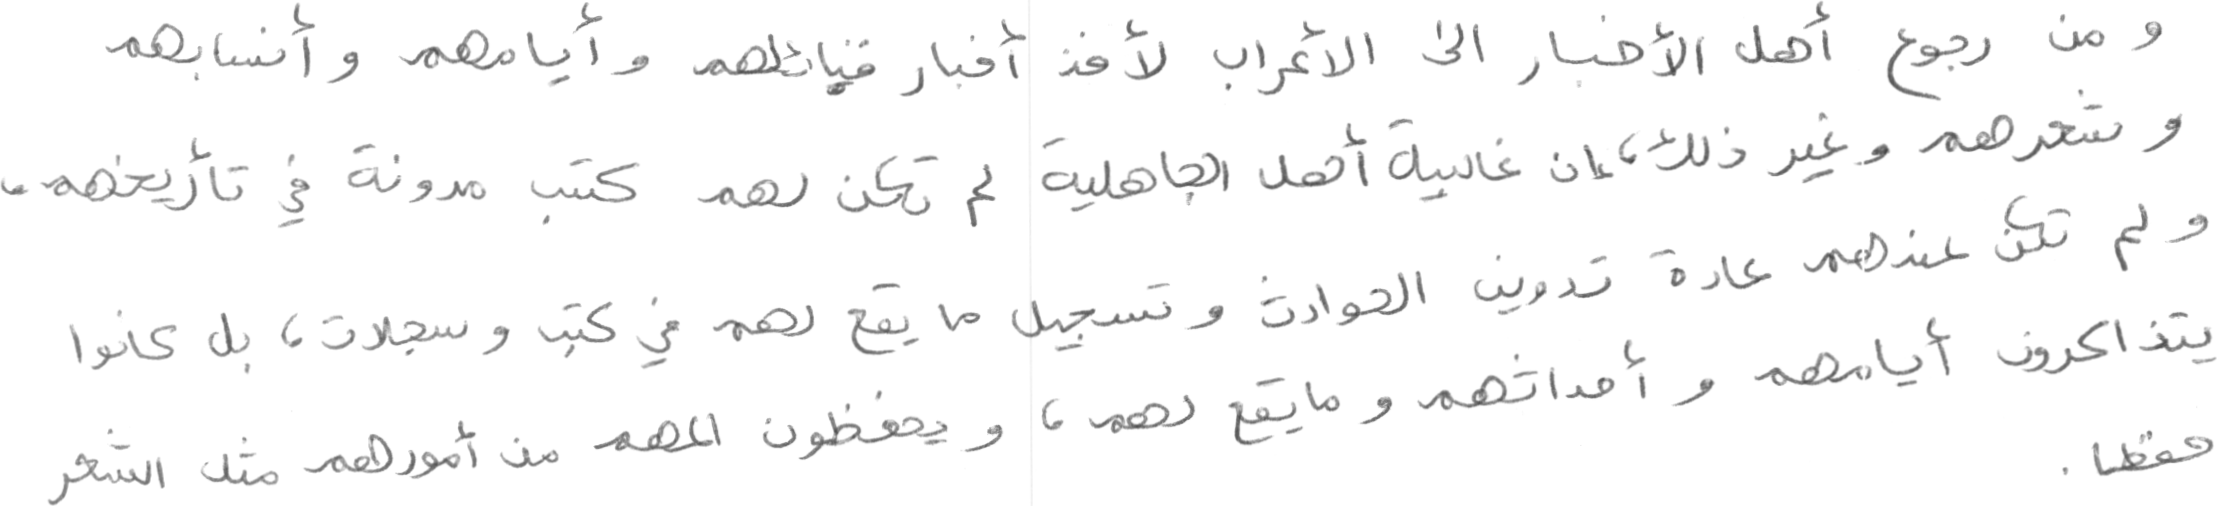 ومن رجوع أهل الأخبار الى الأعراب لأخذ أخبار قبائلهم وأيامهم وأنسابهم
وشعرهم وغير ذلك، إن غالبية أهل الجاهلية لم تكن لهم كتب مدونة في تأريخهم،
ولم تكن عندهم عادة تدوين الحوادث وتسجيل ما يقع لهم في كتب وسجلات، بل كانوا
يتذاكرون أيامهم وأحداثهم وما يقع لهم، ويحفظون المهم من أمورهم مثل الشعر
حفظا.